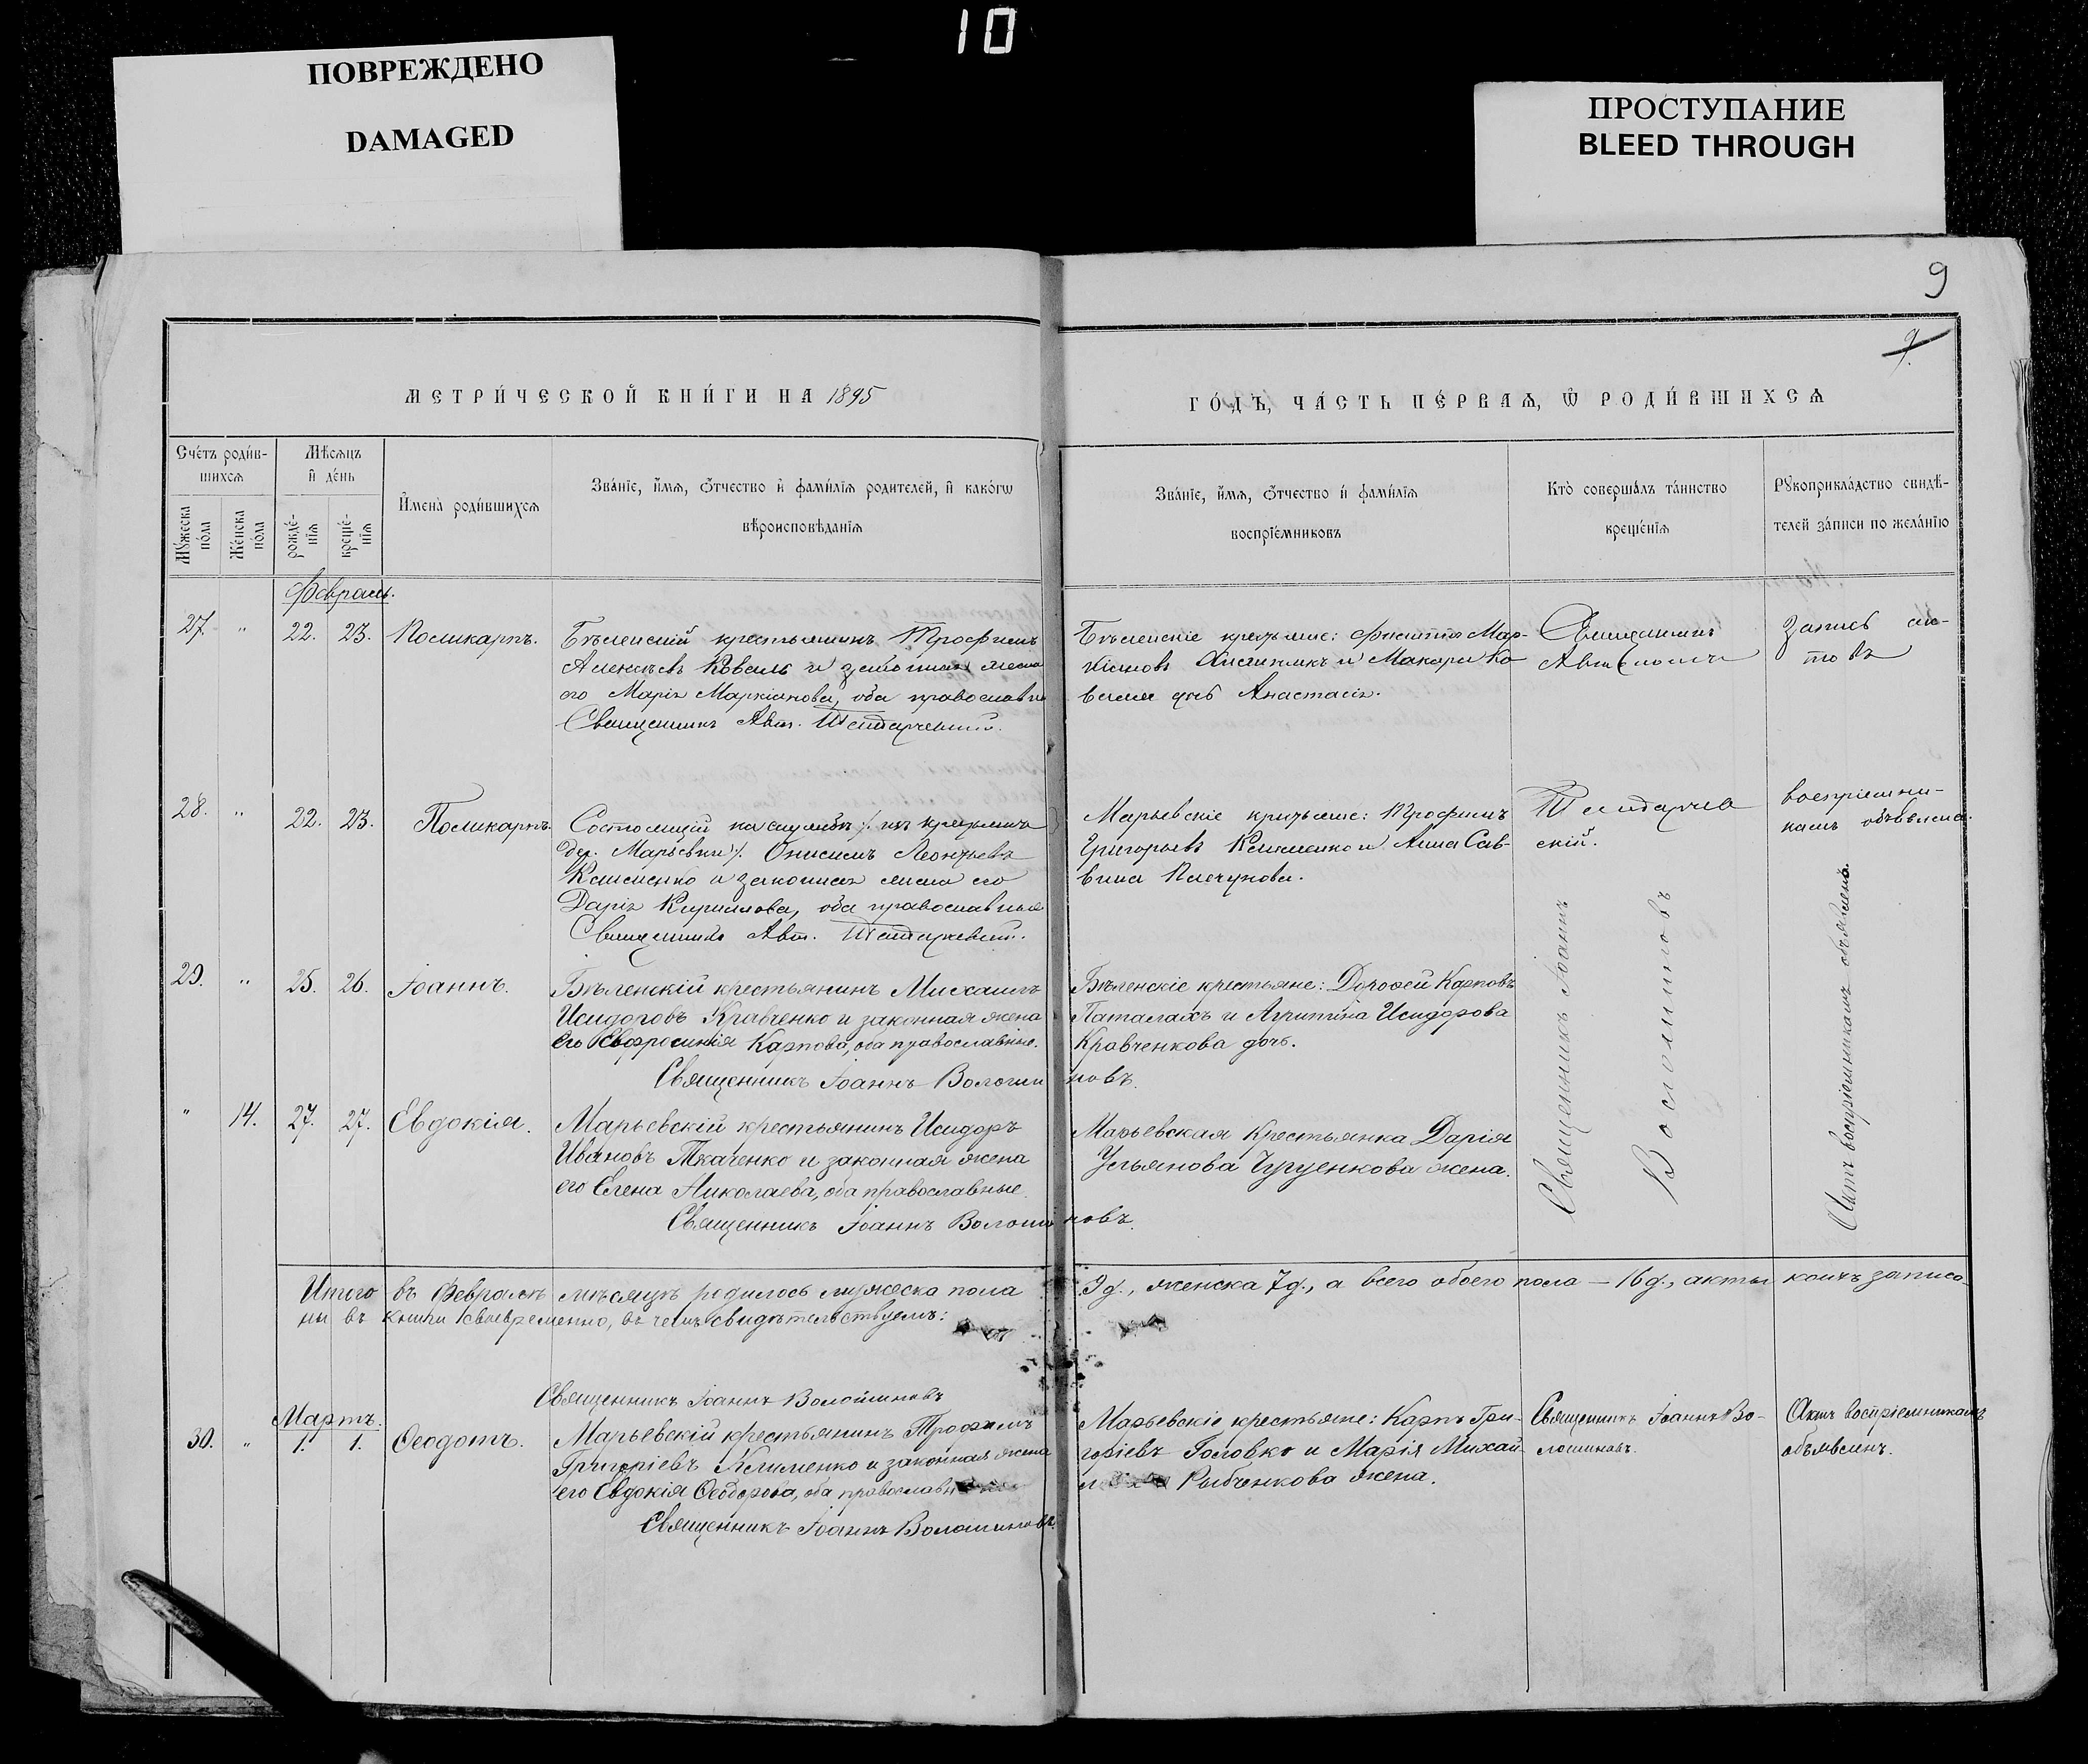 10
ПОВРЕЖДЕНО
DAMAGED
ПРОСТУПАНИЕ
BLEED THROUGH
9
9
МЕТРИ́ЧЕСКОЙ КНИ́ГИ НА 1895
ГО́ДЪ, ЧА́СТЬ ПЕ́РВАѦ, Ѿ РОДИ́ВШИХСѦ
Сче́тъ роди́в-
шихсѧ
Му́жеска по́ла
Же́нска по́ла
Мѣ́сѧцъ
и҆ де́нь
рожде́-
нїѧ
креще́-
нїѧ
И҆мена̀ роди́вшихсѧ
Зва́нїе, и҆́мѧ, ѻ҆́тчество и҆ фами́лїѧ роди́телей, и҆ како́гѡ
вѣроисповѣ́данїѧ
Зва́нїе, и҆́мѧ, ѻ҆́тчество и҆ фами́лїѧ
воспрїе́мниковъ
Кто̀ соверша́лъ та́инство
креще́нїѧ
Рꙋкоприкла́дство свидѣ́-
телей за́писи по жела́нїю
Февраль.
27. " 22. 23. Поликарпъ.
Бѣленскій крестьянинъ Трофимъ
Алексѣевъ Коваль и законная жена
его Марія Маркіанова, оба православные
Священникъ Авт.
Бѣленскіе крестьяне: Филиппъ Мар-
кіановъ и Макарія Ко-
валя дочь Анастасія.
Священникъ
Запись
28. " 22. 23. Поликарпъ.
Состоящій на службѣ /. изъ крестьянъ
дер. Марьевки /. Онисимъ Леонтьевъ
Клименко и законная жена его
Дарія Кириллова, оба православные
Священникъ Авт.
Марьевскіе крестьяне: Трофимъ
Григорьевъ Клименко и Анна Сав-
вина
скій.
воспріемни-
камъ объявлена.
29. " 25. 26. Іоаннъ.
Бѣленскій крестьянинъ Михаилъ
Исидоровъ Кравченко и законная жена
его Евфросинія Карпова, оба православные.
Священникъ Іоаннъ Волошиновъ.
Бѣленскіе крестьяне: Дорофей Карповъ
Паталахъ и Агриппина Исидорова
Кравченкова дочь.
" 14. 27. 27. Евдокія.
Марьевскій крестьянинъ Исидоръ
Ивановъ Ткаченко и законная жена
его Елена Николаева, оба православные.
Священникъ Іоаннъ Волошиновъ.
Марьевская крестьянка Дарія
Ульянова Чугуенкова жена.
Священникъ Іоаннъ
Волошиновъ
Актъ воспріемникамъ объявленъ.
Итого въ Февралѣ мѣсяцѣ родилось мужеска пола 9 д., женска 7 д., а всего обоего пола — 16 д., акты коихъ записа-
ны въ книги своевременно, въ чемъ свидѣтельствуемъ:
Священникъ Іоаннъ Волошиновъ
Мартъ.
30. " 1. 1. Ѳеодотъ.
Марьевскій крестьянинъ Трофимъ
Григоріевъ Клименко и законная жена
его Евдокія Ѳеодорова, оба православн
Священникъ Іоаннъ Волошиновъ.
Марьевскіе крестьяне: Карпъ Гри-
горіевъ Головко и Марія Михай-
Рыбченкова жена.
Священникъ Іоаннъ Во-
лошиновъ.
Актъ воспріемникамъ
объявленъ.